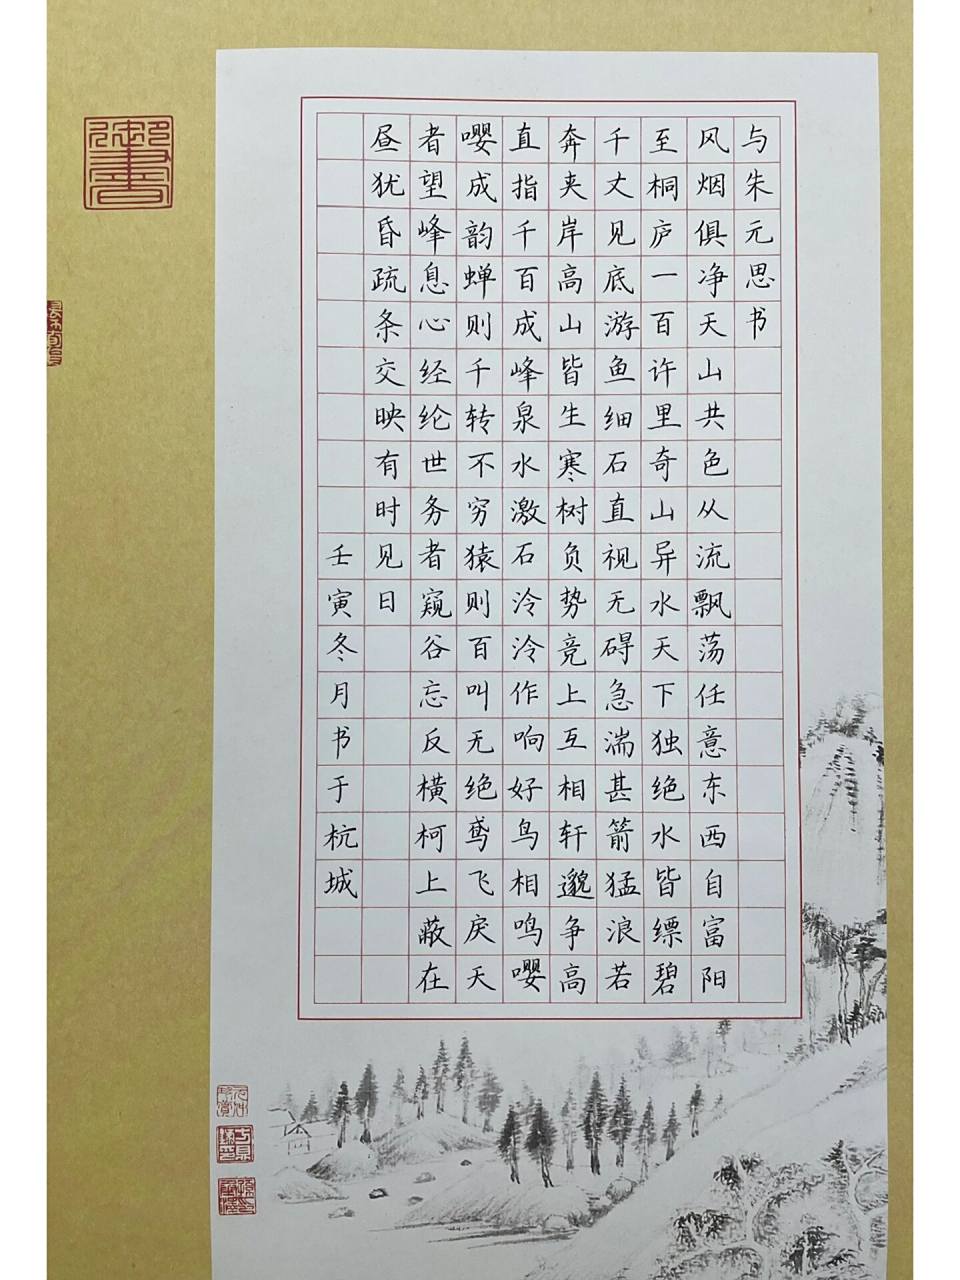 与朱元思书
风烟俱净天山共色从流飘荡任意东西自富阳
至桐庐一百许里奇山异水天下独绝水皆缥碧
千丈见底游鱼细石直视无碍急湍甚箭猛浪若
奔夹岸高山皆生寒树负势竞上互相轩邈争高
直指千百成峰泉水激石泠泠作响好鸟相鸣嘤
嘤成韵蝉则千转不穷猿则百叫无绝鸢飞戾天
者望峰息心经纶世务者窥谷忘反横柯上蔽在
昼犹昏疏条交映有时见日
壬寅冬月书于杭城